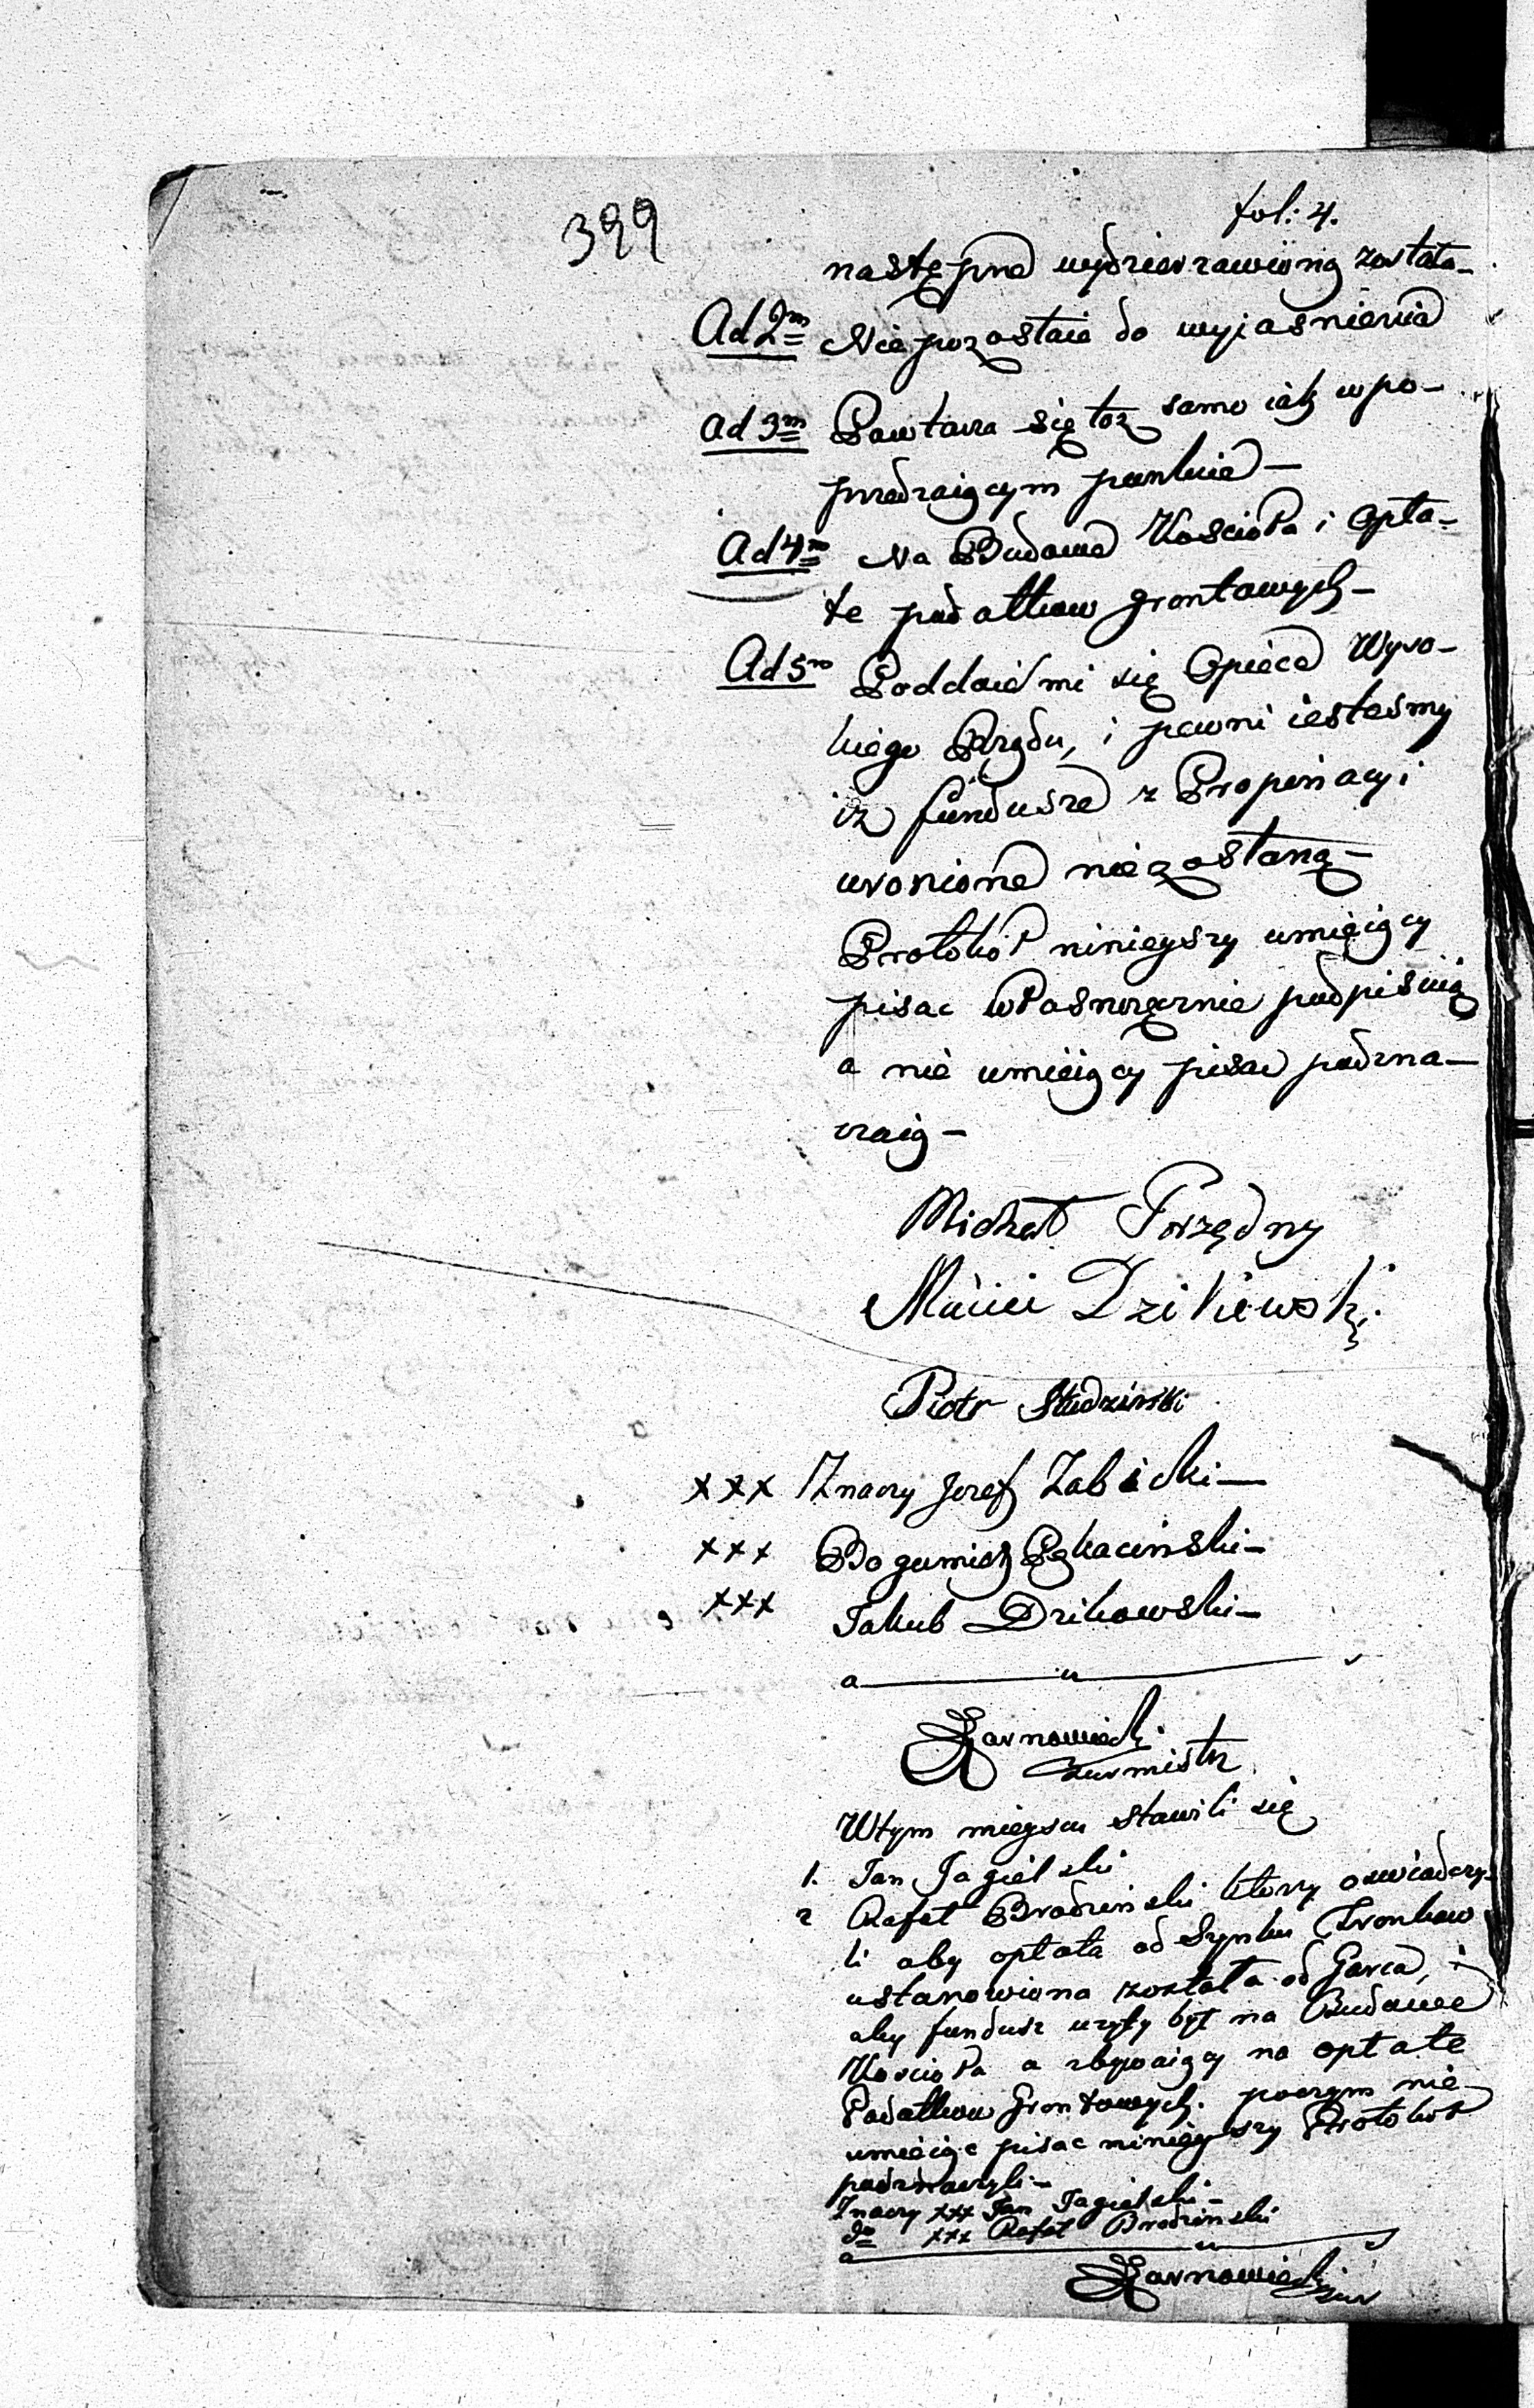 399
fol: 4.
następnie wydzierzawioną została
Ad 2m Nie pozostaie do wyjasnienia
Ad 3m Powtarza się toż samo iak w po-
przedzaiącym punkcie —
Ad 4m Na Budowe Kościoła i Opła-
te podatkow grontowych —
Ad 5m Poddaiemi się Opiece Wyso-
kiego Rządu, i pewni iestesmy
iz fundusze z Propinacyi
uronione nie zostaną —
Protokoł ninieyszy umieiący
pisac własnoręcznie podpisuią
a nie umieiący pisac podzna-
czaią —
Michał Porzędny
Maciei Dzikiewski
Piotr Studziński
xxx Znaczy Jozef Zabicki —
xxx Bogumieł Pękaciński —
xxx Jakub Dzikowski —
a u
Żarnowiecki
Burmistrz
W tym mieyscu stawili się
1. Jan Jagielski
2 Rafał Brodziński ktorzy oswiadczy-
li aby opłata od Szynku Tronkow
ustanowiona została od Garca, i
aby fundusz uzyty był na Budowe
Koscioła a zbywaiący na opłate
Podatkow Grontowych. poczym nie
umieiąc pisac ninieyszy Protokoł
podznaczyli —
Znaczy xxx Jan Jagielski —
do xxx Rafał Brodzinski
a u
Żarnowiecki Bur